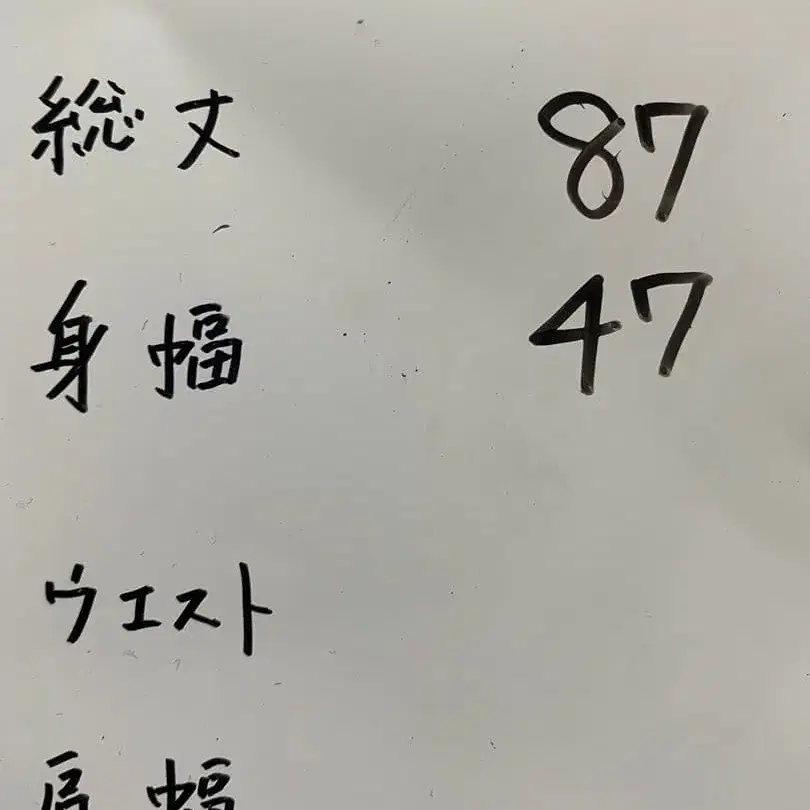 総丈 87
身幅 47
ウエスト
肩幅